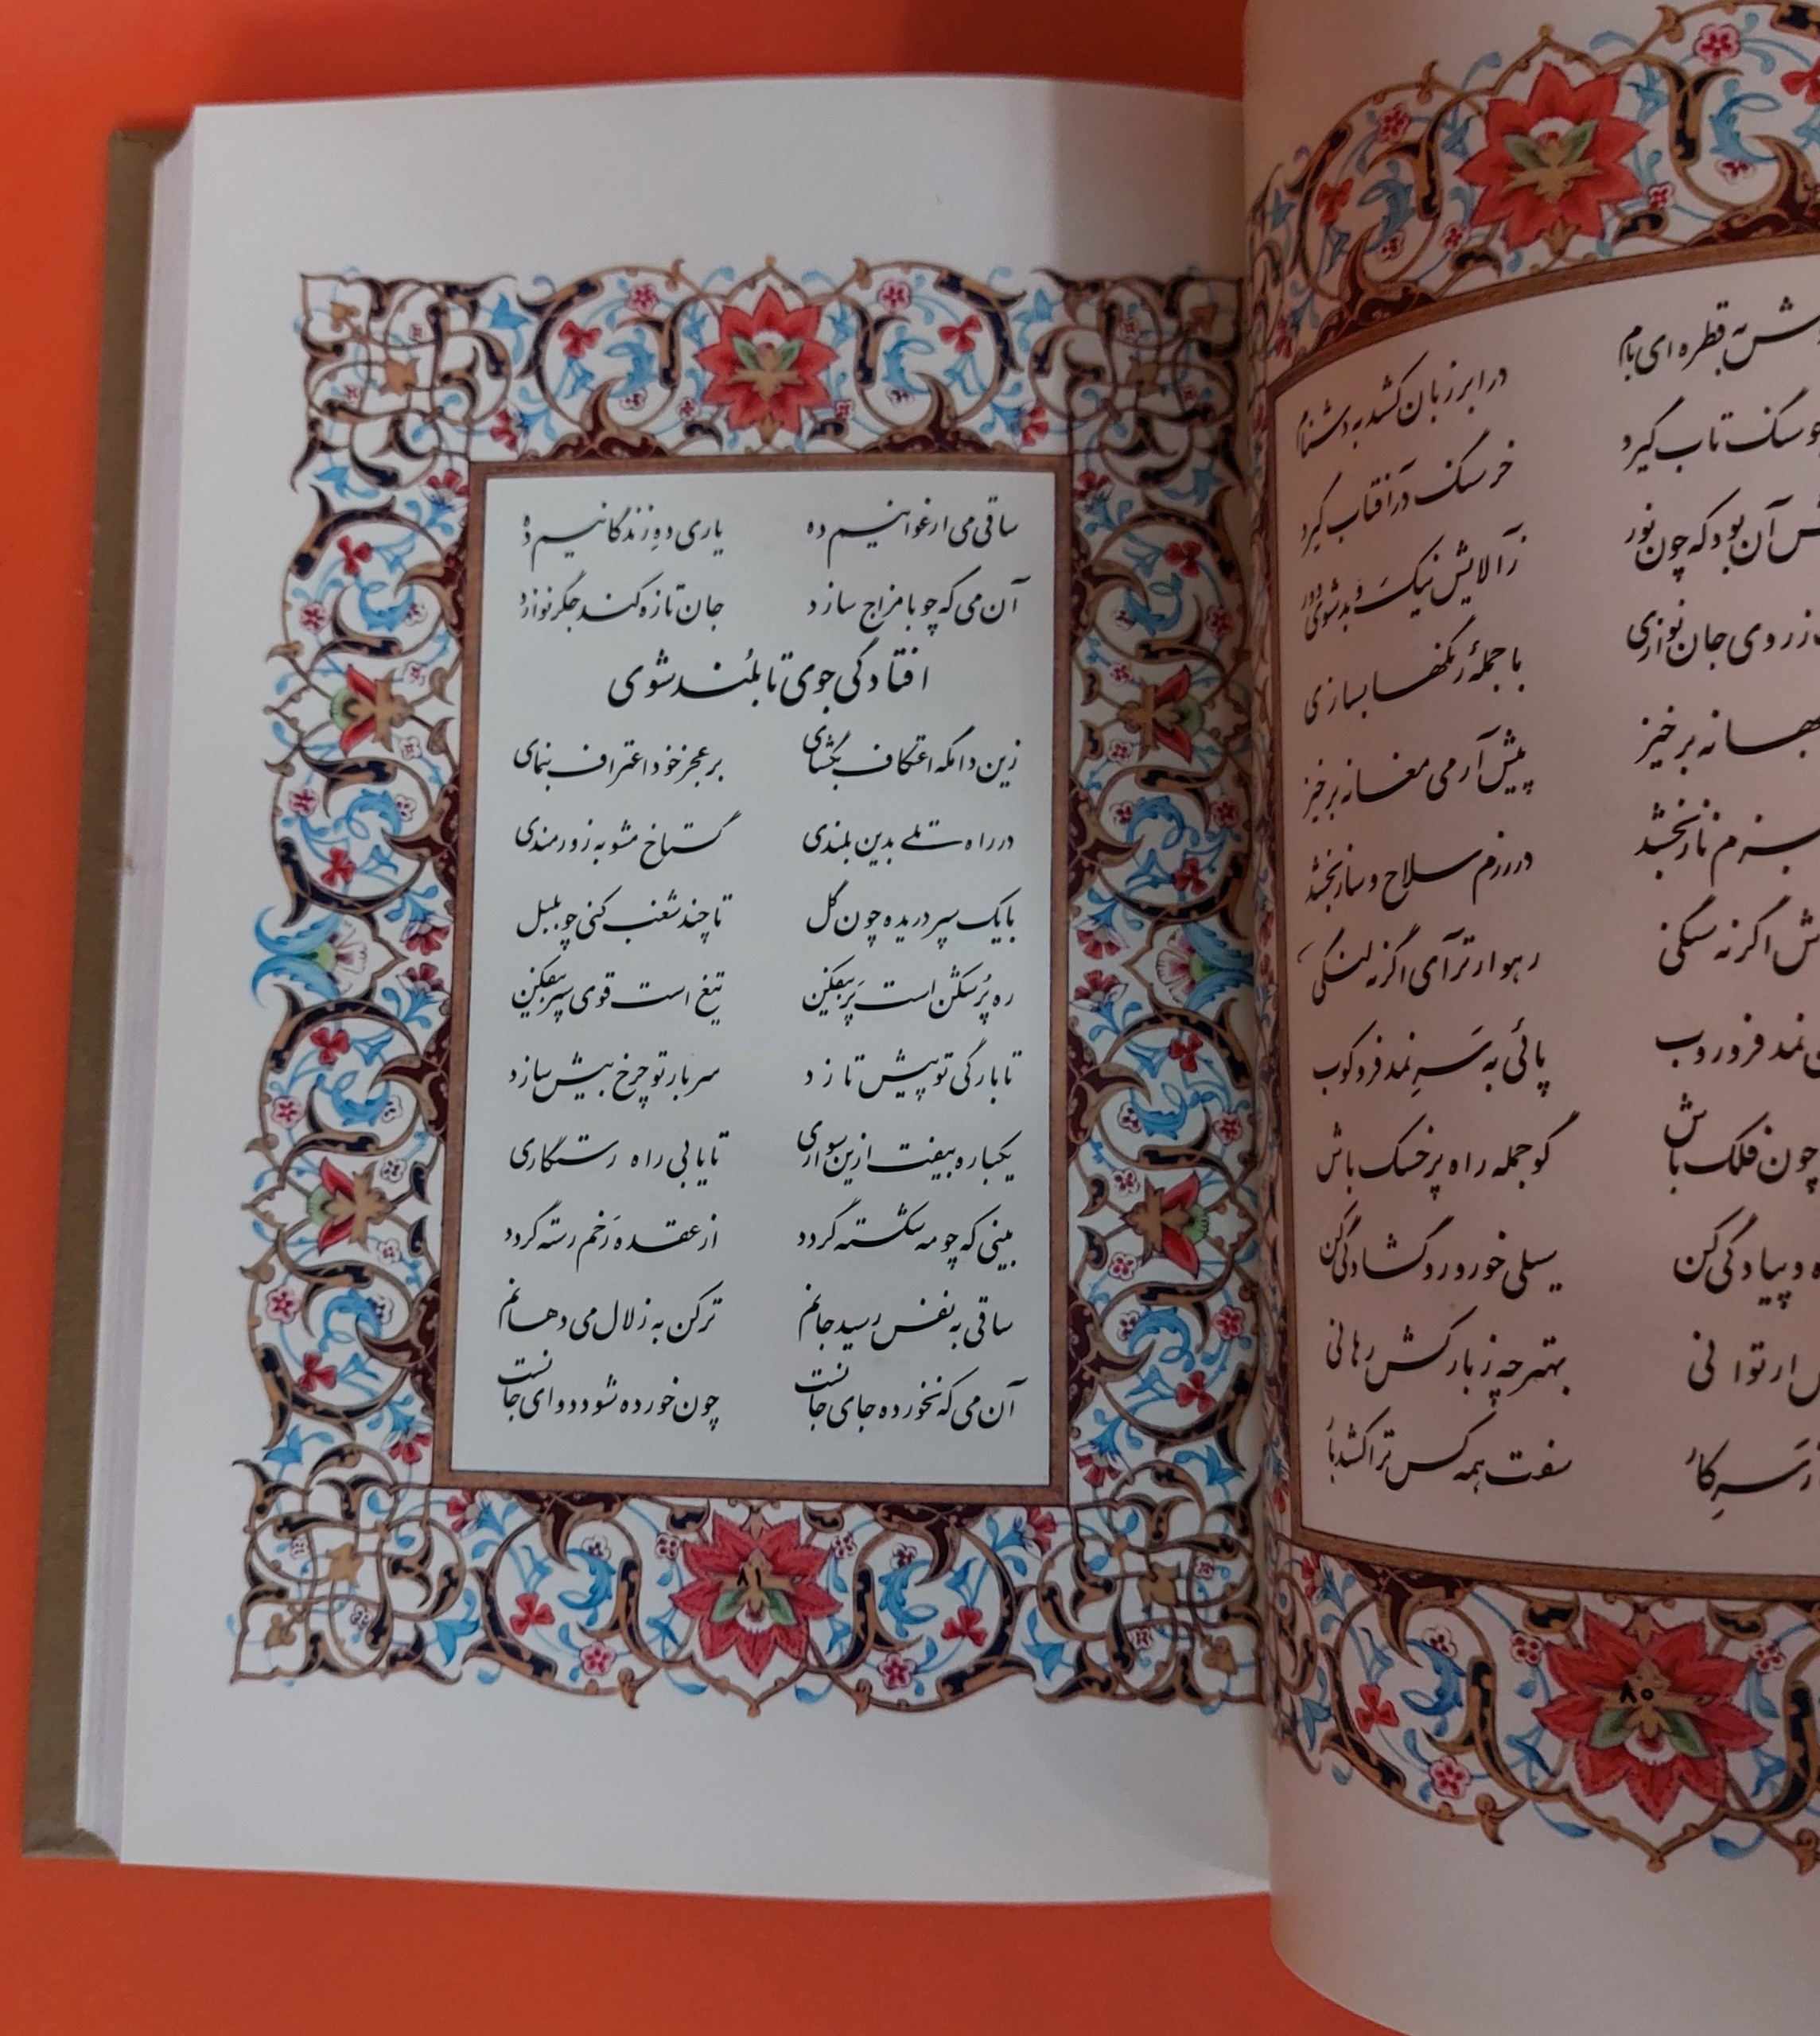 به قطره ای بام در ابر زبان کشد به دشنام
سگ تاب گیرد خر سنگ در آفتاب گیرد
آن بود که چون نور زآلایش نیک و بد شوی دور
روی جان نوازی با جملهٔ رنگها بسازی
برخیز پیش آر می مغانه برخیز
بزم ناز بخشد در رزم سلاح و ساز بخشد
اگر نه سنگی رهوارتر آی اگر نه لنگی
نمد فرو روب پائی به سَرِ نمد فرو کوب
چون فلک باش گو جمله راه پر خسک باش
و پیادگی کن سیلی خور و رو گشادگی کن
ار توانی بهتر چه ز بار کش رهانی
سَرِ کار سفت همه کس ترا کشد بار
۸۰
ساقی می ارغوانیم ده یاری دهِ زندگانیم ده
آن می که چو با مزاج سازد جان تازه کند جگر نوازد
افتادگی جوی تا بلُند شوی
زین دامگه اعتکاف بگشای بر عجز خود اعتراف بنمای
در راه تلی بدین بلندی گستاخ مشو به زورمندی
با یک سپر دریده چون گل تا چند شغب کنی چو بلبل
ره پُر شکن است پَر بیفکن تیغ است قوی سپر بیفکن
تا بارگی تو پیش تازد سربار تو چرخ بیش سازد
یکباره بیفت ازین سواری تا یابی راه رستگاری
بینی که چو مه شکسته گردد از عقده رَخم رسته گردد
ساقی به نفس رسید جانم تر کن به زلال می دهانم
آن می که نخورده جای جانست چون خورده شود دوای جانست
۸۱